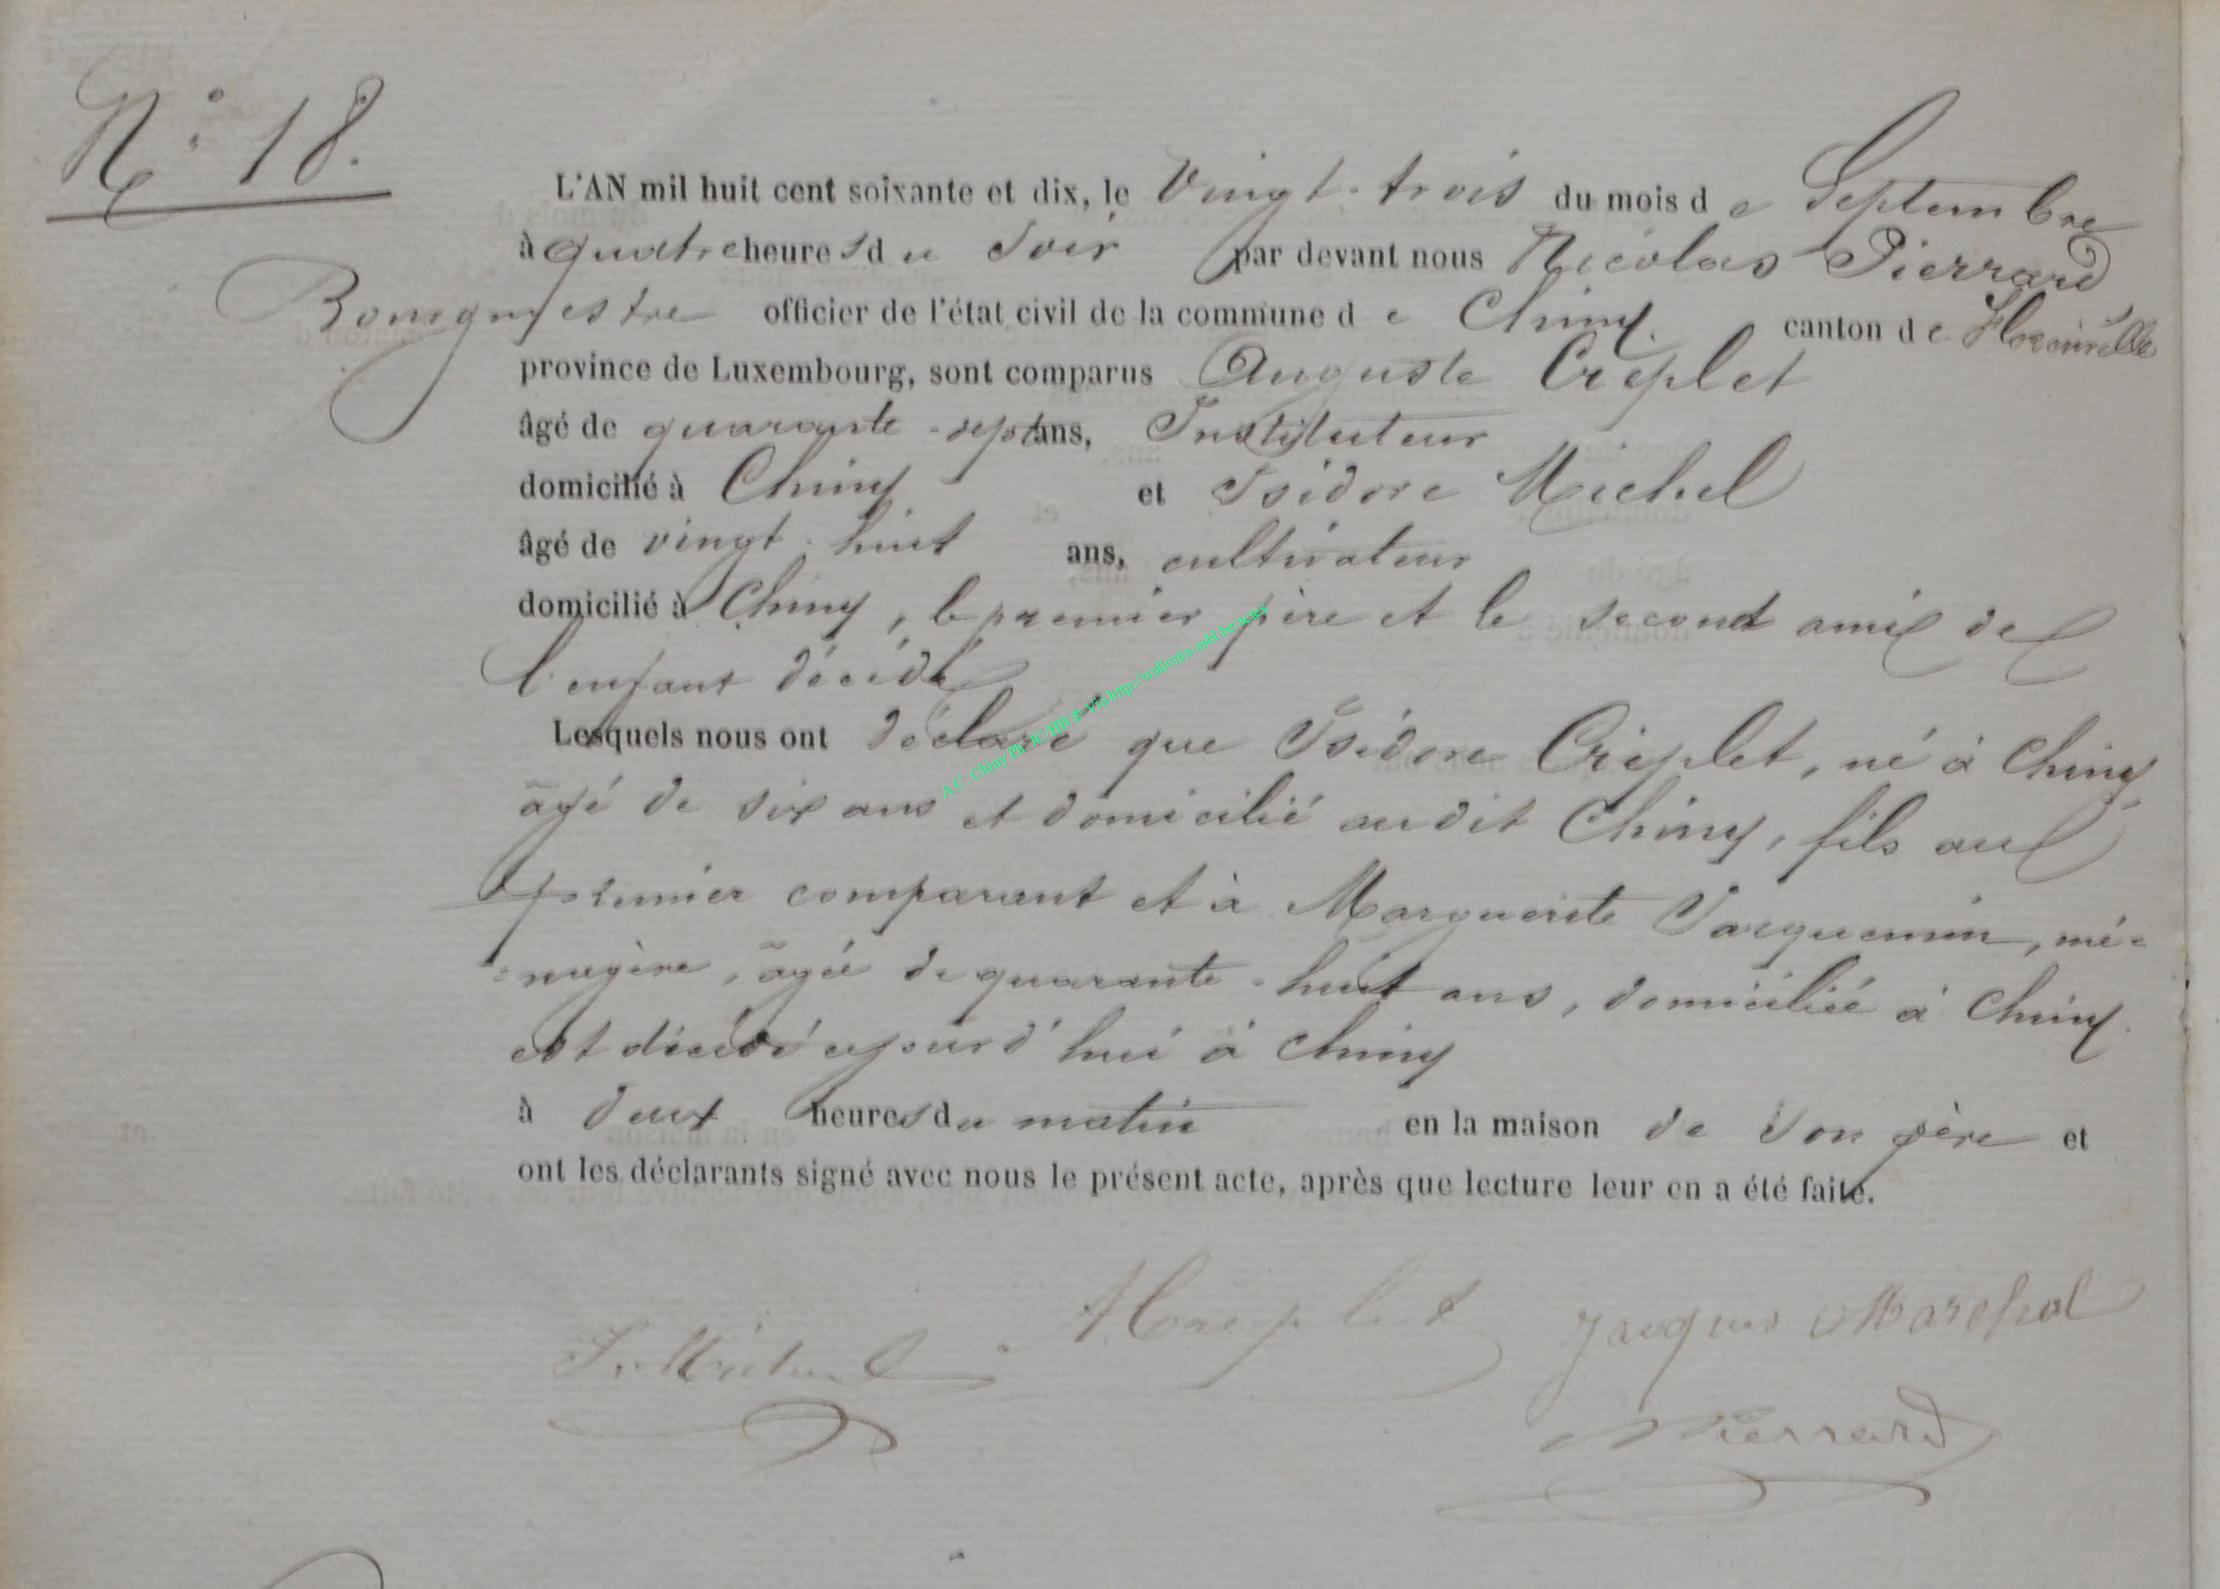 N° 18.
L'AN mil huit cent soixante et dix, le Vingt-trois du mois de Septembre
à quatre heures du Soir par devant nous Nicolas Pierrard
Bourgmestre officier de l'état civil de la commune de Chiny. canton de Florenville
province de Luxembourg, sont comparus Auguste Créplet
âgé de quarante-sept ans, Instituteur
domicilié à Chiny et Isidore Michel
âgé de vingt-huit ans, cultivateur
domicilié à Chiny, le premier père et le second ami de
l'enfant décédé
Lesquels nous ont déclaré que Isidore Créplet, né à Chiny
âgé de six ans et domicilié audit Chiny, fils au
premier comparant et à Marguerite Jacquemin, mé=
=nagère, âgée de quarante-huit ans, domiciliée à Chiny.
est décédé ajourd'hui à Chiny
à deux heures du matin en la maison de son père et
ont les déclarants signé avec nous le présent acte, après que lecture leur en a été faite.
J. Michel ACréplet Jacques Marchal
NPierrard